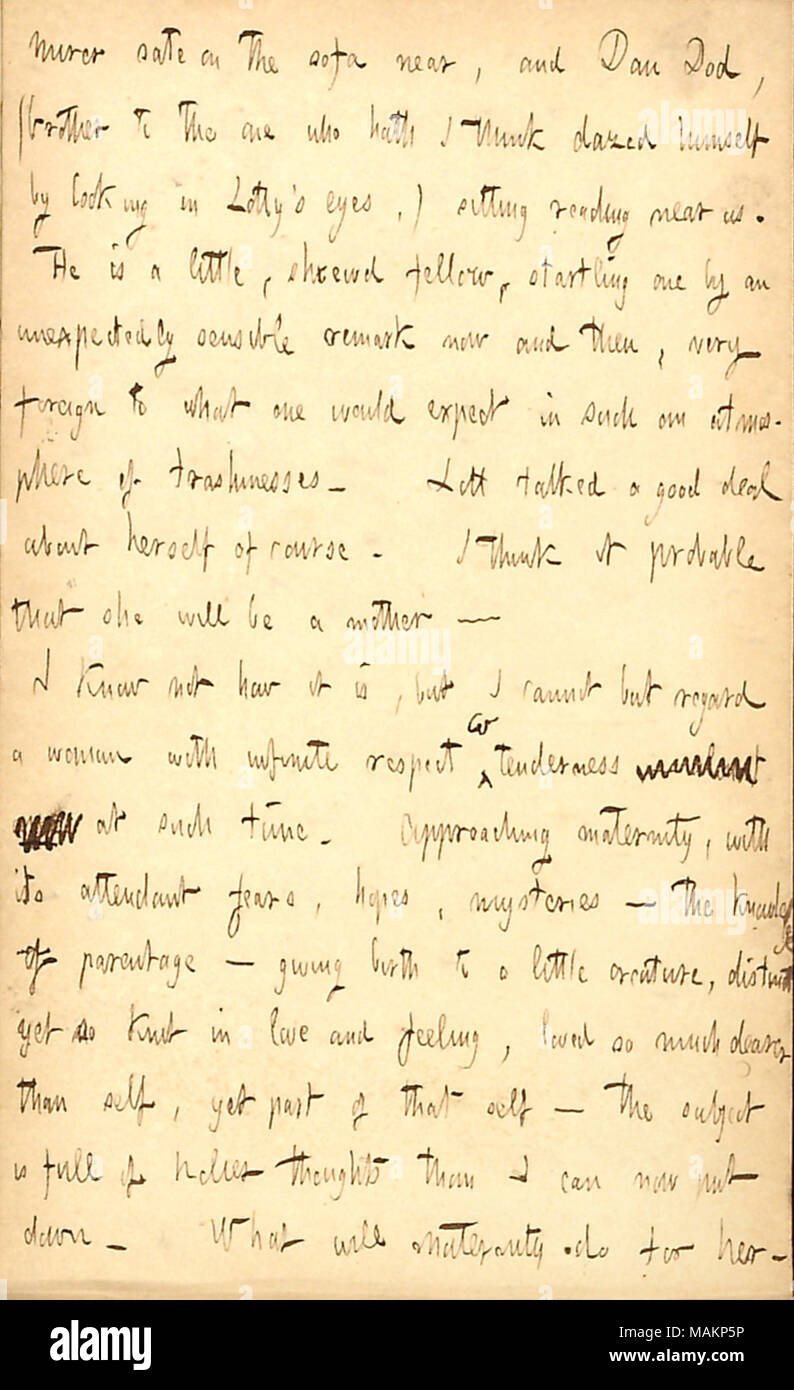 sate on the sofa near, and Dan Dod,
(brother to the one who hath I think dazed himself
by looking in Lotty's eyes,) sitting reading near us.
He is a little, shrewd fellow, startling one by an
unexpectedly sensible remark now and then, very
foreign to what one would expect in such an atmos-
phere of trashinesses— Lott talked a good deal
about herself of course. I think it probable
that she will be a mother —
I know not how it is, but I cannot but regard
a woman with infinite respect & tenderness
at such time. Approaching maternity, with
its attendant fears, hopes, mysteries — the knowledge
of parentage — giving birth to a little creature, distinct
yet so knit in love and feeling, loved so much dearer
than self, yet part of that self — the subject
is full of holier thoughts than I can now put
down — What will maternity do for her —
alamy
Image ID: MAKP5P
www.alamy.com